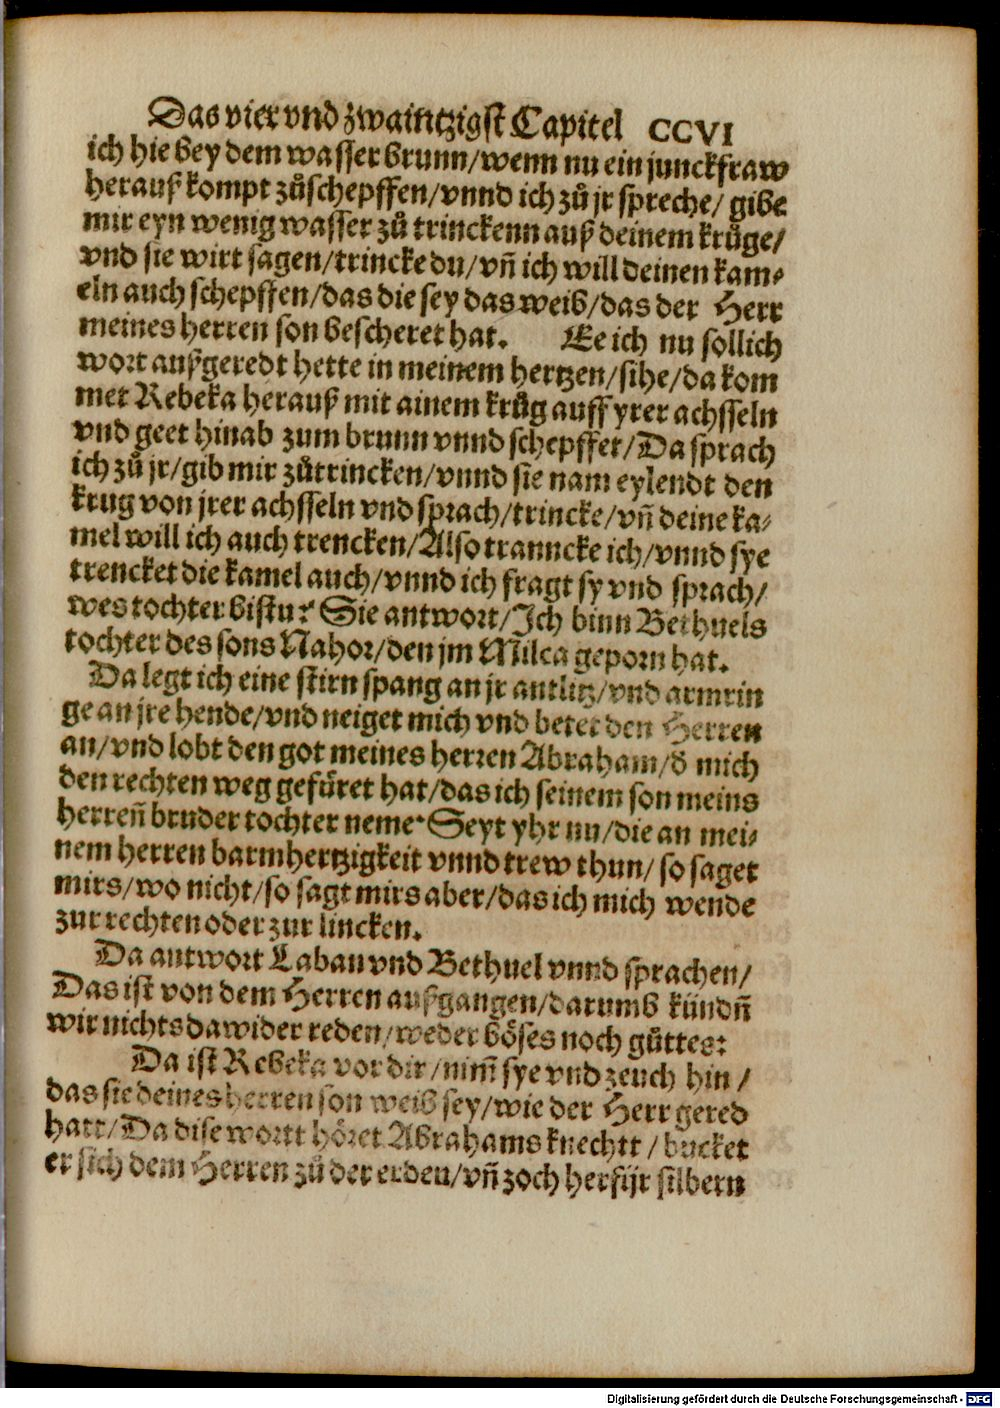 Das vier vnd zwaintzigst Capitel CCVI
ich hie bey dem wasser brunn/wenn nu ein junckfraw
herauß kompt zůschepffen/vnnd ich zů jr spreche/ gibe
mir eyn wenig wasser zů trinckenn auß deinem krůge/
vnd sie wirt sagen/trincke du/vñ ich will deinen kam⸗
eln auch schepffen/das die sey das weib/das der Herr
meines herren son bescheret hat. Ee ich nu sollich
wort außgeredt hette in meinem hertzen/sihe/da kom
met Rebeka herauß mit ainem krůg auff yrer achsseln
vnd geet hinab zum brunn vnnd schepffet/Da sprach
ich zů jr/gib mir zůtrincken/vnnd sie nam eylendt den
krug von jrer achsseln vnd sprach/trincke/vñ deine ka⸗
mel will ich auch trencken/Also tranncke ich/vnnd sye
trencket die kamel auch/vnnd ich fragt sy vnd sprach/
wes tochter bistu? Sie antwort/Ich binn Bethuels
tochter des sons Nahor/den jm Milca geporn hat.
Da legt ich eine stirn spang an jr antlitz/vnd armrin
ge an jre hende/vnd neiget mich vnd betet den Herren
an/vnd lobt den got meines herren Abraham/đ mich
den rechten weg gefüret hat/das ich seinem son meins
herreñ bruder tochter neme. Seyt yhr nu/die an mei⸗
nem herren barmhertzigkeit vnnd trew thun/ so saget
mirs/wo nicht/so sagt mirs aber/das ich mich wende
zur rechten oder zur lincken.
Da antwort Laban vnd Bethuel vnnd sprachen/
Das ist von dem Herren außgangen/darumb kündñ
wir nichts dawider reden/weder böses noch gůttes:
Da ist Rebeka vor dir/nim̃ sye vnd zeuch hin/
das sie deines herren son weib sey/wie der Herr gered
hatt/Da dise wortt höret Abrahams knechtt/ bucket
er sich dem Herren zů der erden/vñ zoch herfijr silbern
Digitalisierung gefördert durch die Deutsche Forschungsgemeinschaft - DFG